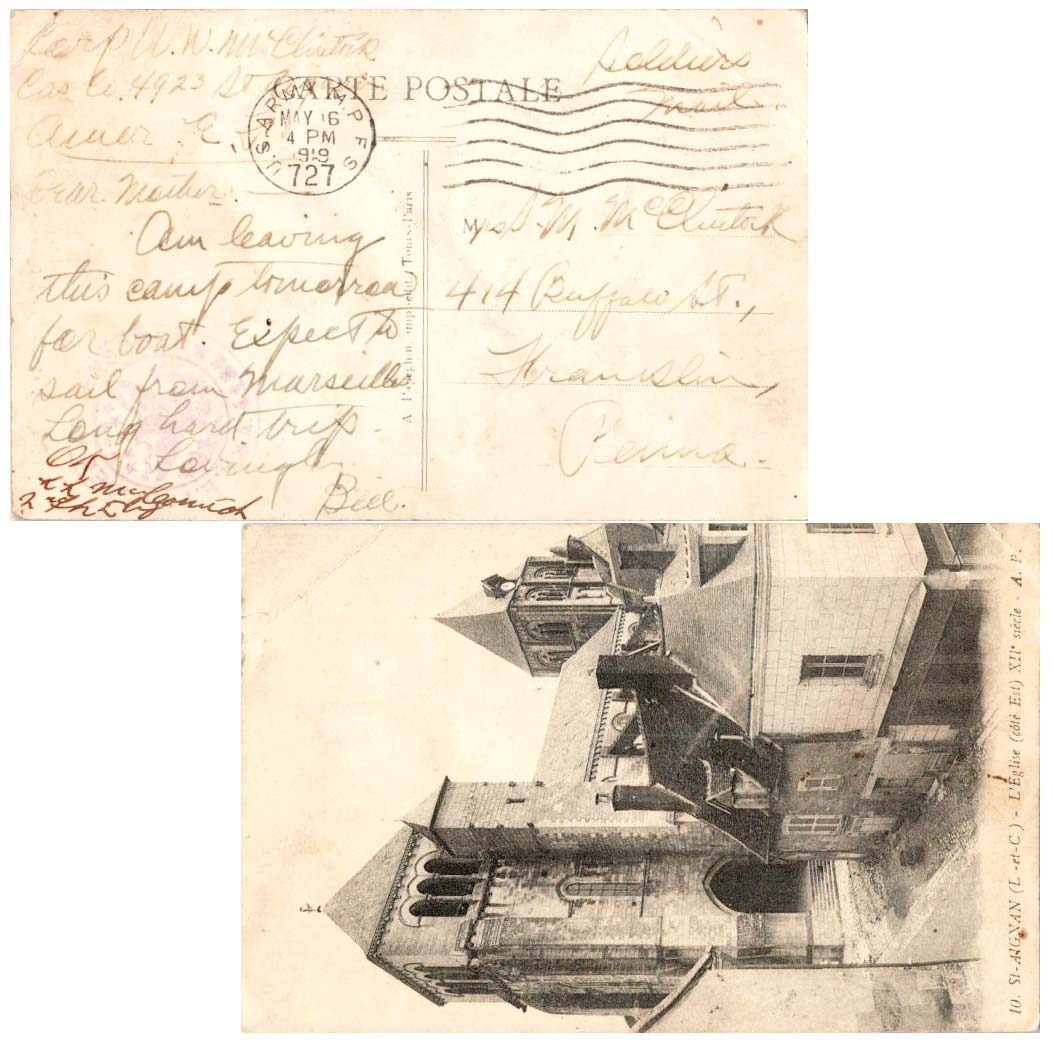 Corp W. W. McClintock
Cas Co. 4923 St
Amer. E.
CARTE POSTALE
U.S. ARMY M.P.E.S.
MAY 16
4 PM
1919
727
Soldiers
mail.
Dear Mother.
Am leaving
this camp tomorrow
for boat. Expect to
sail from Marseilles
Long hard trip.
Lovingly
Bill.
OK
Mrs. S. M. McClintock
414 Buffalo St.,
Franklin,
Penna.
10. St-AIGNAN (L.-et-C.) - L'Eglise (côté Est) XIIe siècle - A. P.